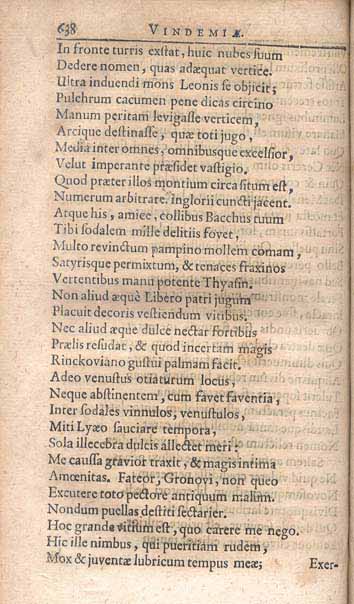 638 VINDEMIÆ.
In fronte turris exstat, huic nubes suum
Dedere nomen, quas adæquat vertice.
Ultra induendi mons Leonis se objicit;
Pulchrum cacumen pene dicas circino
Manum peritam levigasse verticem,
Arcique destinasse, quæ toti jugo,
Media inter omnes, omnibusque excelsior,
Velut imperante præsidet vastigio.
Quod præter illos montium circa situm est,
Numerum arbitrare. inglorii cuncti jacent.
Atque his, amice, collibus Bacchus tuum
Tibi sodalem mille delitiis fovet,
Multo revinctum pampino mollem comam,
Satyrisque permixtum, & tenaces fraxinos
Vertentibus manu potente Thyasin.
Non aliud æquè Libero patri jugum
Placuit decoris vestiendum vitibus.
Nec aliud æque dulce nectar fortibus
Prælis resudat, & quod incertam magis
Rinckoviano gustui palmam facit.
Adeo venustus otiaturum locus,
Neque abstinentem, cum favet faventia,
Inter sodales vinnulos, venustulos,
Miti Lyæo sauciare tempora,
Sola illecebra dulcis allectet meri:
Me caussa gravior traxit, & magis intima
Amœnitas. Fateor, Gronovi, non queo
Excutere toto pectore antiquum malum.
Nondum puellas destiti sectarier.
Hoc grande victum est, quo carere me nego.
Hic ille nimbus, qui pueritiam rudem,
Mox & juventæ lubricum tempus meæ;
Exer-